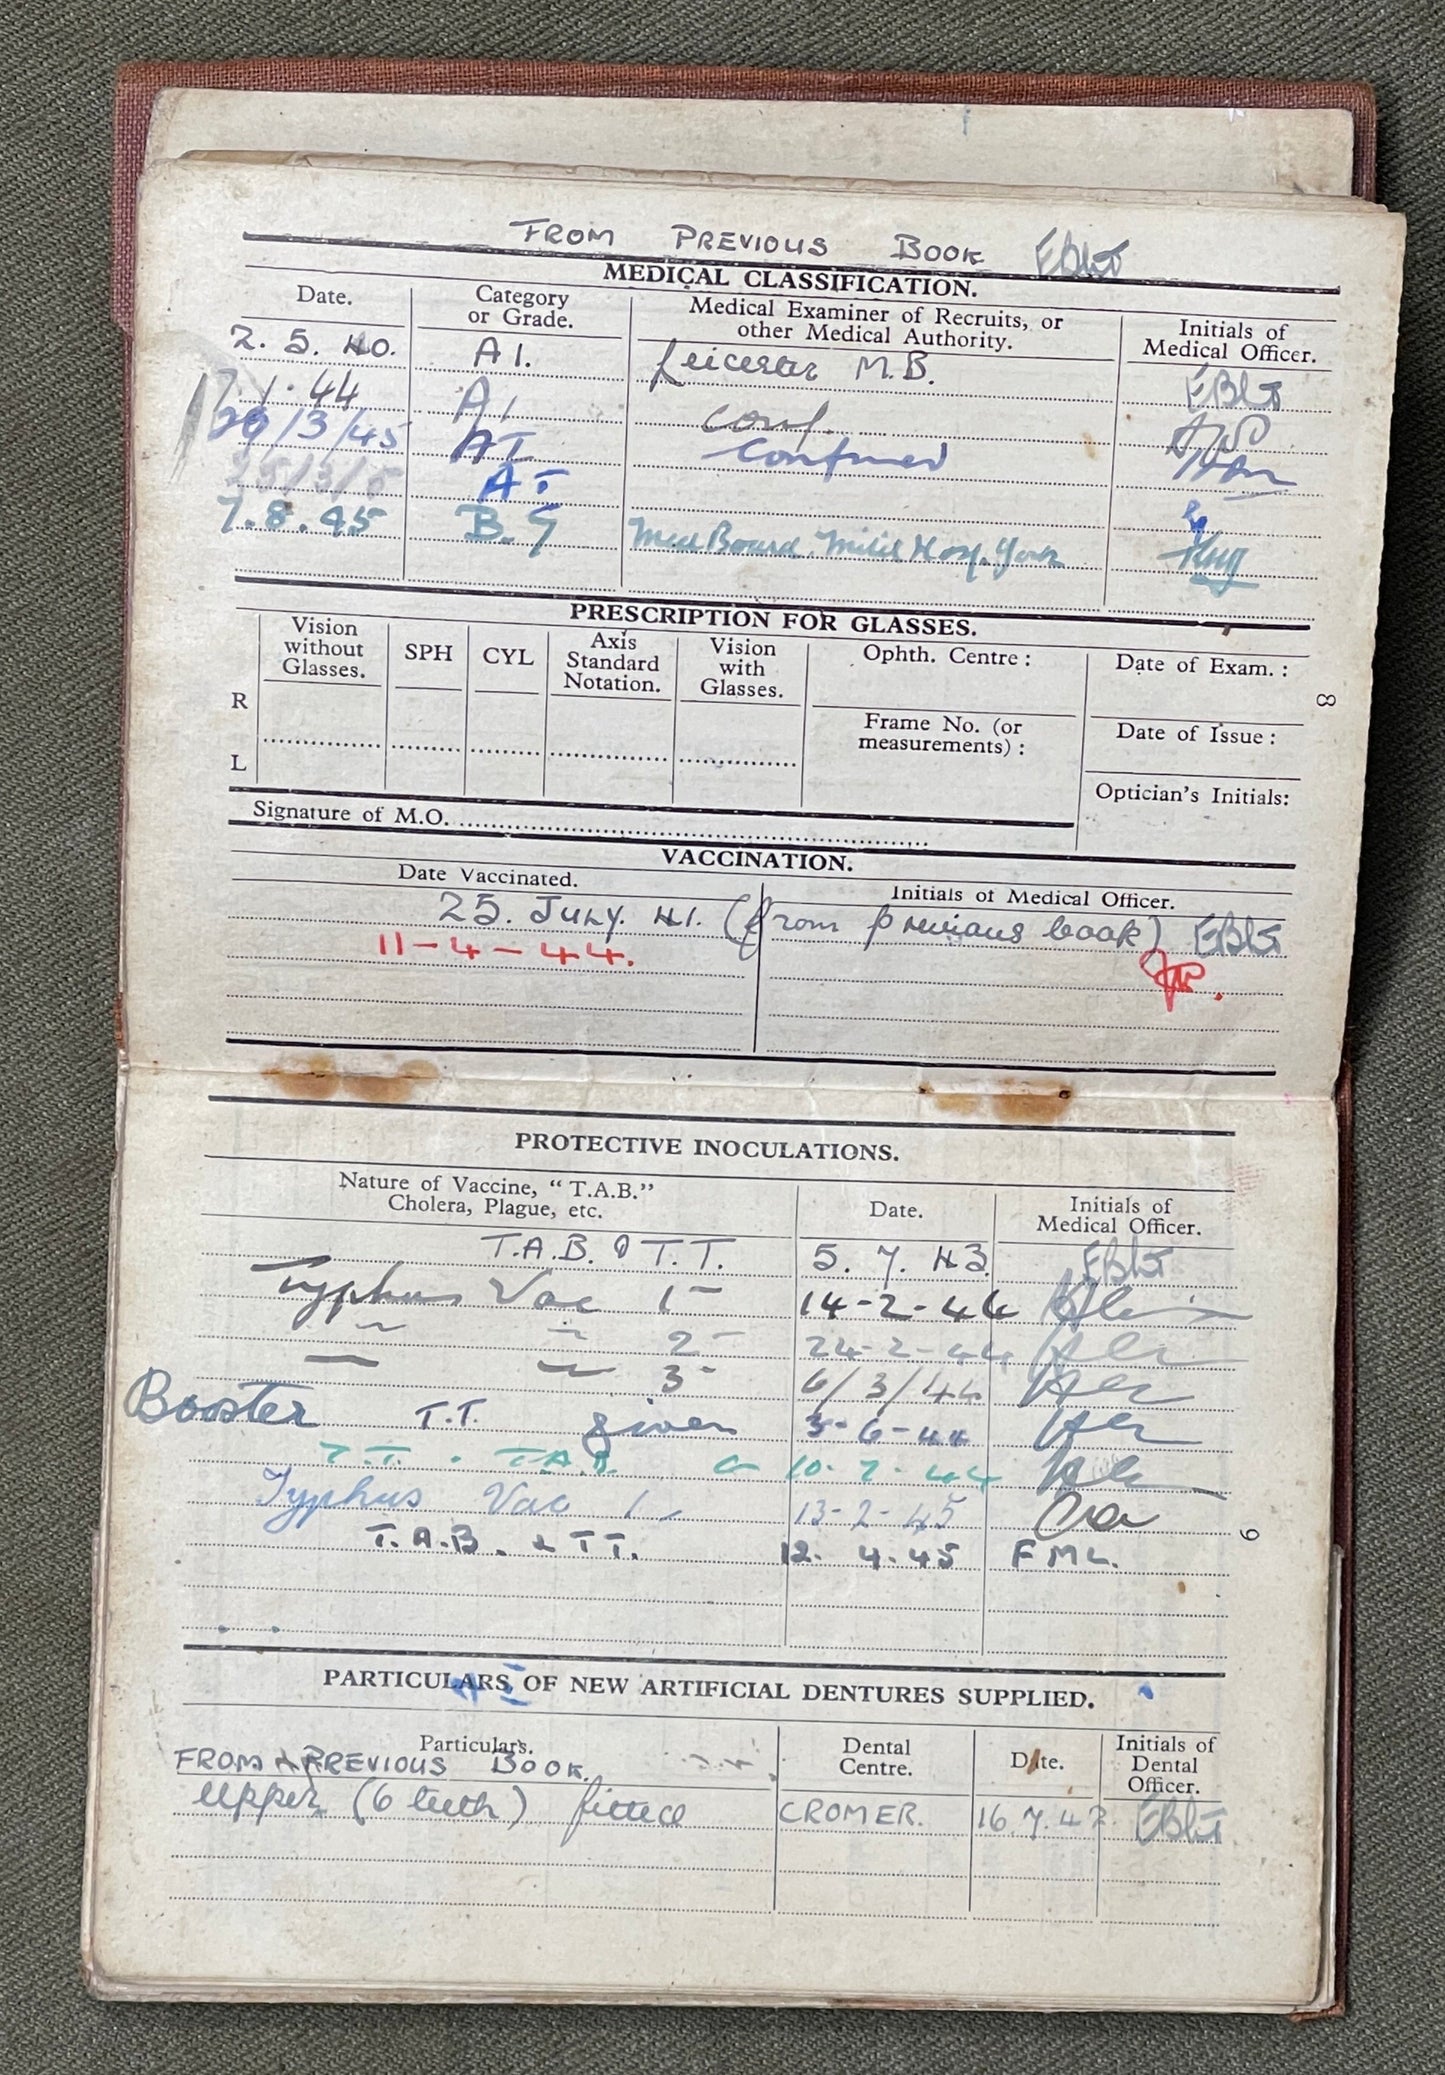 FROM PREVIOUS BOOK
MEDICAL CLASSIFICATION.
Date. Category or Grade. Medical Examiner of Recruits, or other Medical Authority. Initials of Medical Officer.
2. 5. 40. A1. Leicester M.B.
1. 44 A1 conf.
20/3/45 A1 Confirmed
25/3/5 A I
7. 8. 45 B. 7 Med Board. Milit Hosp. York
PRESCRIPTION FOR GLASSES.
Vision without Glasses. SPH CYL Axis Standard Notation. Vision with Glasses. Ophth. Centre: Date of Exam.:
R 8
Frame No. (or measurements): Date of Issue:
L
Optician's Initials:
Signature of M.O.
VACCINATION.
Date Vaccinated. Initials of Medical Officer.
25. JULY. 41. (from previous book)
11-4-44.
PROTECTIVE INOCULATIONS.
Nature of Vaccine, "T.A.B." Cholera, Plague, etc. Date. Initials of Medical Officer.
T.A.B. & T.T. 5. 7. 43
Typhus Vac 1 14-2-44
2 24-2-44
3 6/3/44
Booster T.T. given 3-6-44
T.T. . T.A.B. 10-7-44
Typhus Vac 1 13-2-45
T.A.B. & TT. 12. 4.45 F M L.
9
PARTICULARS OF NEW ARTIFICIAL DENTURES SUPPLIED.
Particulars. Dental Centre. Date. Initials of Dental Officer.
FROM PREVIOUS BOOK.
Upper (6 teeth) fitted CROMER. 16.7.42